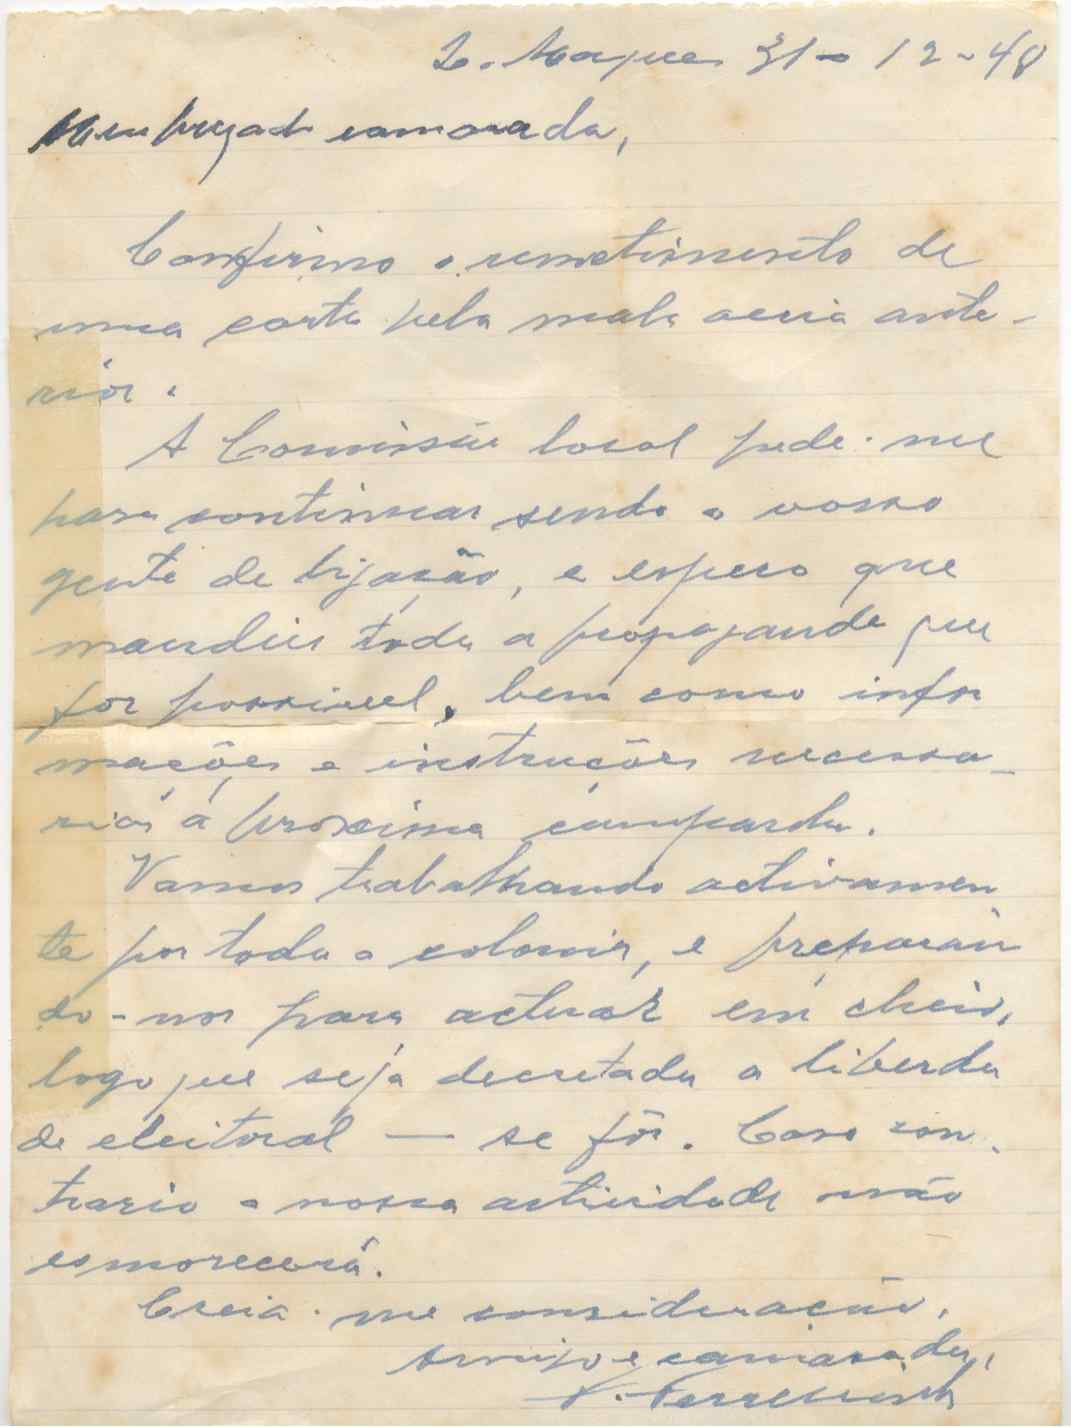 L. Marques 31-12-48
Meu prezado camarada,
Confirmo o remetimento de
uma carta pela mala aeria ante-
rior.
A Comissão local pede-me
para continuar sendo o vosso
gente de ligação, e espero que
mandeis toda a propaganda que
fôr possivel, bem como infor
mações e instruções necessa-
rias á proxima campanha.
Vamos trabalhando activamen
te por toda a colonia, e preparan
do-nos para actuar em cheio,
logo que seja decretada a liberda
de eleitoral — se fôr. Caso con-
trario a nossa actividade não
esmorecerá.
Creia-me consideração,
Amigo e camarada,